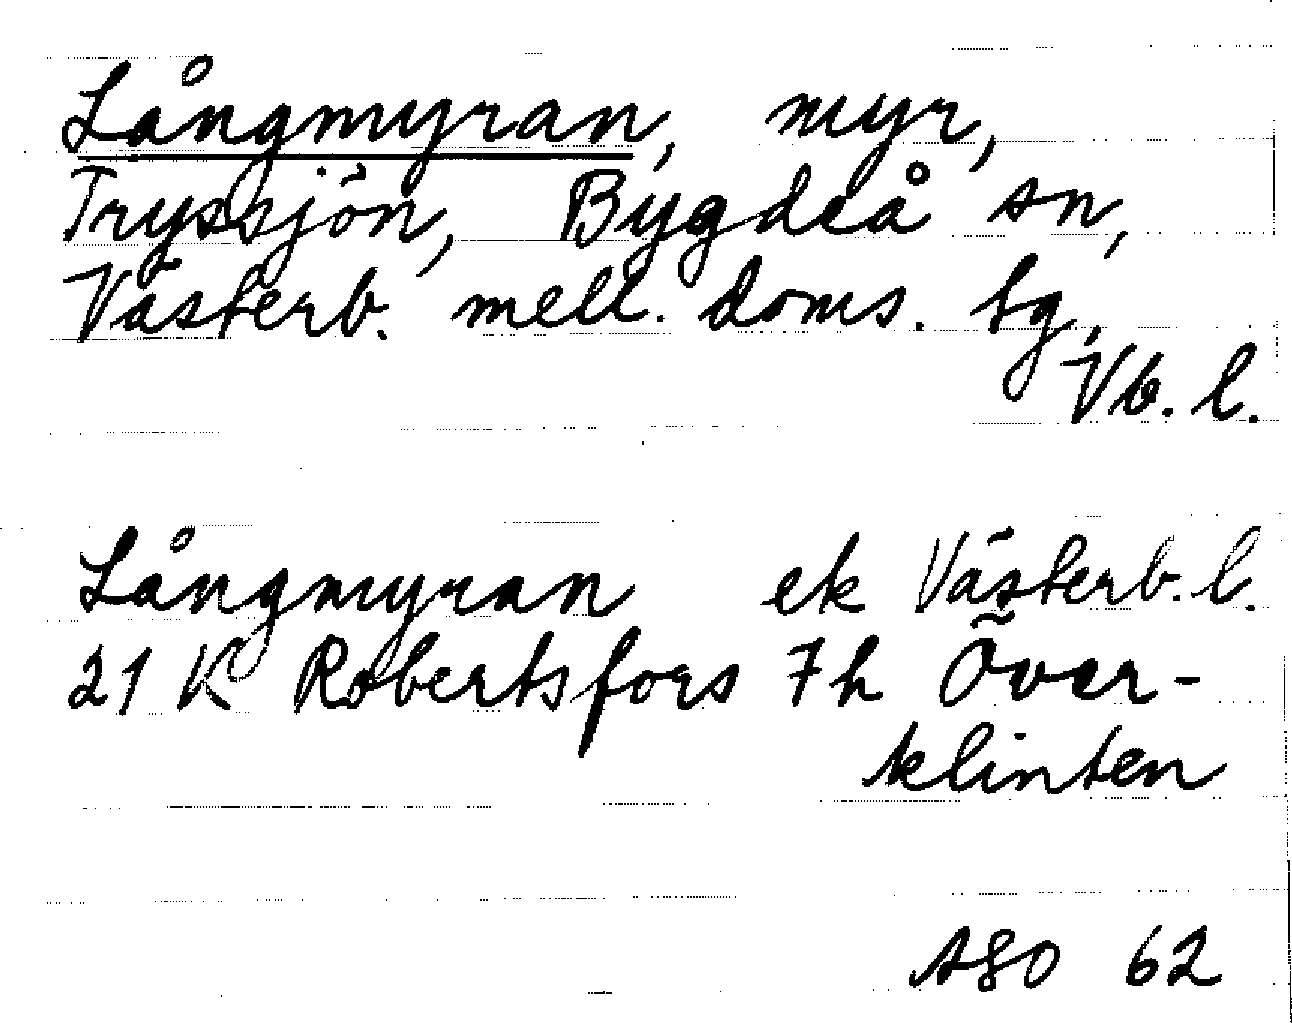 Långmyran, myr,
Tryssjön, Bygdeå sn,
Västerb. mell. doms. tg,
Vb. l.
Långmyran ek Västerb. l.
21 K Robertsfors 7h Över-
klinten
ASO 62